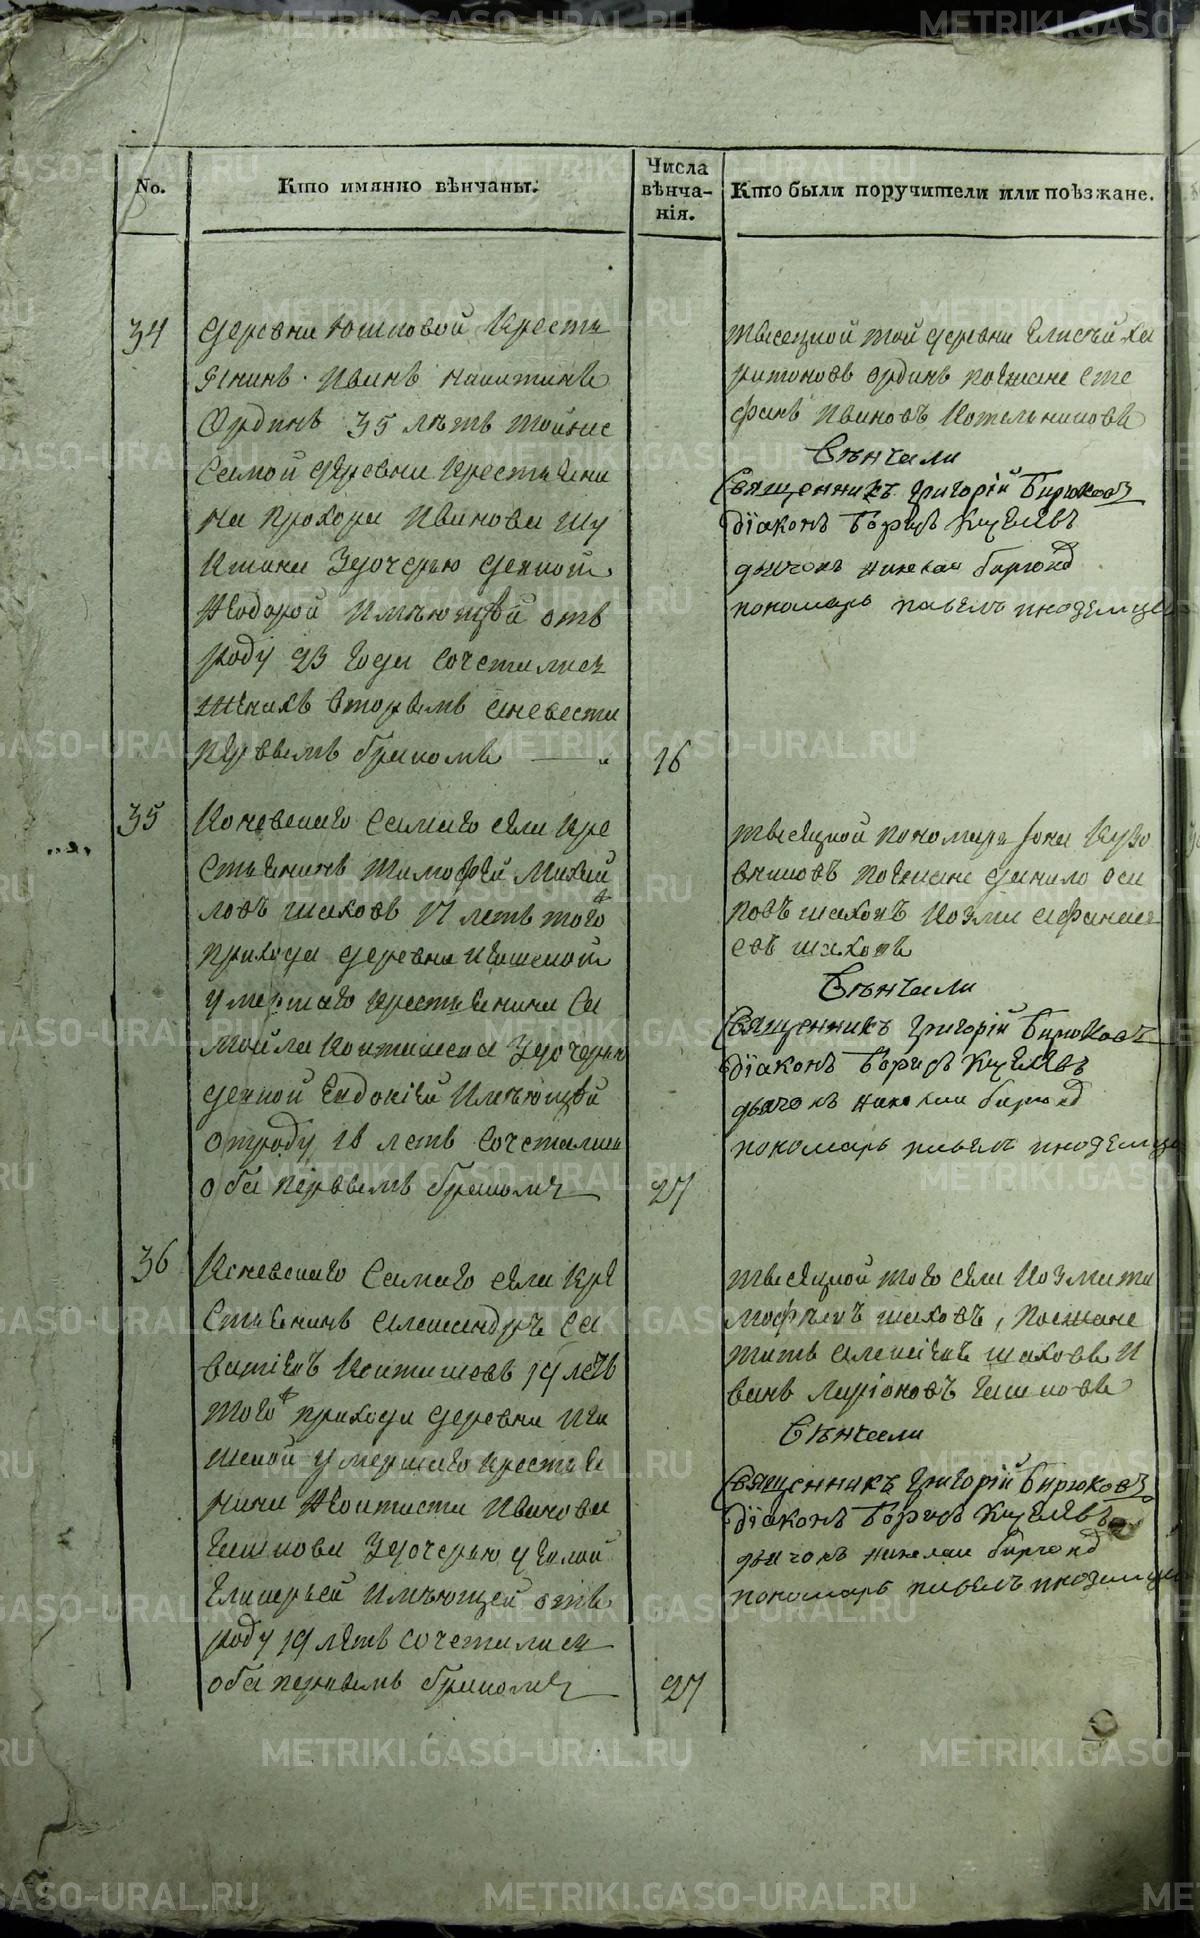 No.
Кто имянно вѣнчаны.
Числа
вѣнча-
нія.
Кто были поручители или поѣзжане.
34
деревни Юшковой крестья
янинъ Иванъ Никитинъ
Ординъ 35 лѣтъ тойже
самой деревни крестьяни
на Прохора Иванова Шу
кшина здочерью девкою
Ѳеодорой имѣющей отъ
роду 23 года сочетались
женихъ вторымъ аневеста
первымъ бракомъ
16
тысяцкой той деревни Елисѣй Ха
ритоновъ Ординъ поезжане Сте
фанъ Ивановъ Котельниковъ
Вѣнчали
Священникъ Григорій Бирюковъ
Діаконъ Борисъ
дьячокъ Николай Бирюков
пономарь Павелъ Иноземцев
35
Коневскаго самаго села кре
стьянинъ Тимофей Михай
ловъ Шаховъ 17 летъ того
прихода деревни
умершаго крестьянина Са
мойла здочерью
девкой Евдокіей имѣющей
отроду 18 летъ сочетались
оба первымъ бракомъ
27
тысяцкой пономарь Іона Кузо
вниковъ поезжане Данило Оси
повъ Шаховъ Козма Афанась
евъ Шаховъ
Вѣнчали
Священникъ Григорій Бирюковъ
Діаконъ Борисъ
дьячокъ Николай Бирюков
пономарь Павелъ Иноземцев
36
Коневскаго самаго села кре
стьянинъ Александръ Са
ватіевъ 19 летъ
того прихода деревни
умершаго крестья
нина Ѳеоктиста Иванова
здочерью девкой
Гликерьей имѣющей отъ
роду 19 летъ сочетались
оба первымъ бракомъ
27
тысяцкой того села Козма Ти
мофѣевъ Шаховъ, поезжане
Титъ Алексіевъ Шаховъ И
ванъ Ларіоновъ
Вѣнчали
Священникъ Григорій Бирюковъ
Діаконъ Борисъ
дьячокъ Николай Бирюков
пономарь Павелъ Иноземцев
METRIKI.GASO-URAL.RU